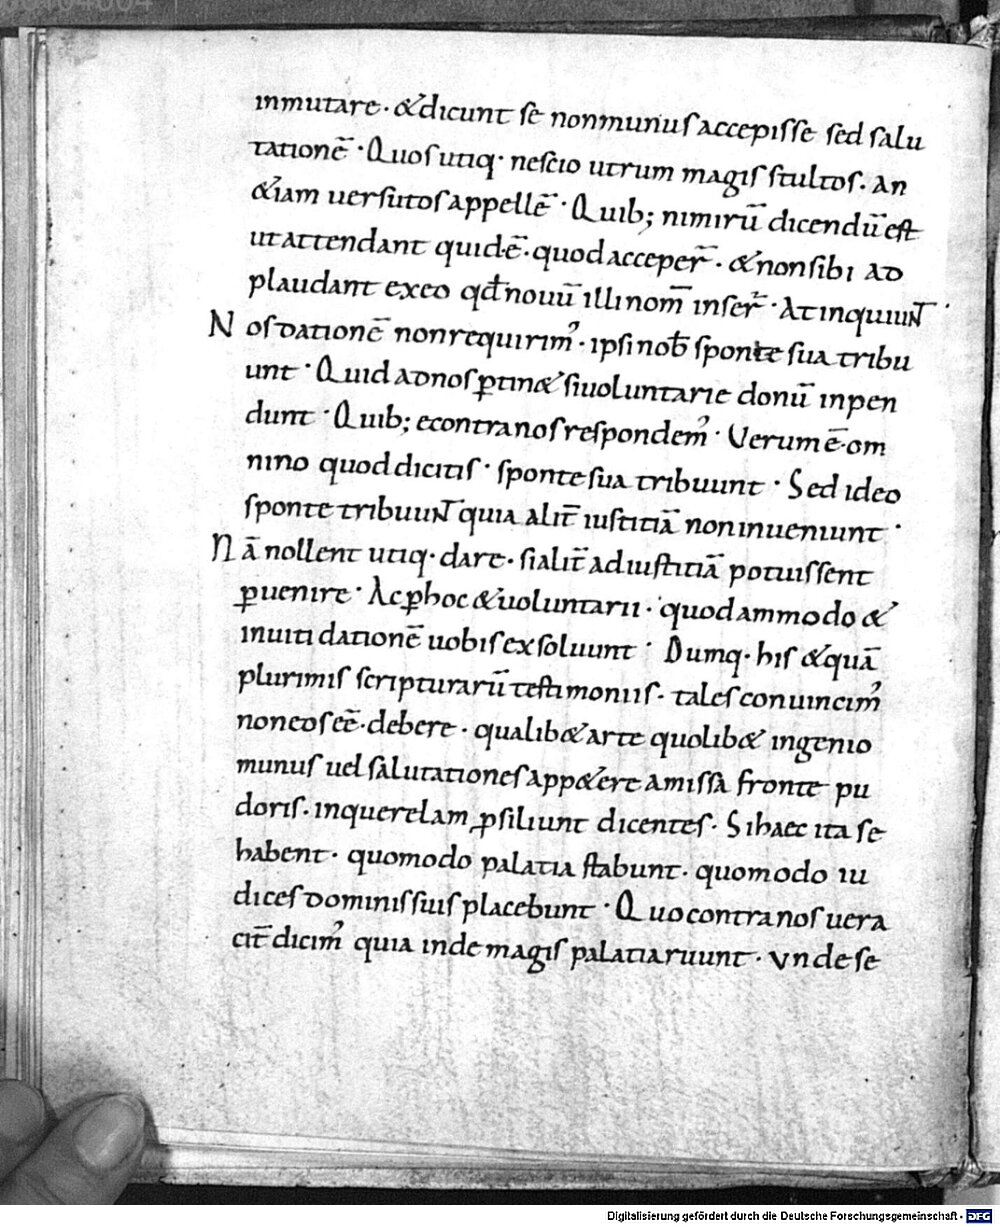 inmutare · &dicunt se nonmunus accepisse sed salu
tationē · Quos utiq· nescio utrum magis stultos. An
&iam uersutos appellē · Quib; nimirū dicendū est
ut attendant quid·ē· quod acceper̄ · & non sibi ad
plaudant ex eo qđ nouū illi nom̄ inser̄ · At inquiunt ·
Nos dationē non requirim᾿ · ipsi nob̄ sponte sua tribu
unt · Quid ad nos ꝑtin& si uoluntarie donū inpen
dunt · Quib; econtra nos respondem᾿ · Verum ē· om
nino quod dicitis · sponte sua tribuunt · Sed ideo
sponte tribuunt quia alit̄ iustitiā non inueniunt ·
Nā nollent utiq· dare · si alit̄ ad iustitiā potuissent
ꝑuenire · Ac ꝑ hoc & uoluntarii · quodammodo &
inuiti dationē uobis exsoluunt · Dumq· his & quā
plurimis scripturarū testimoniis · tales conuincim᾿
non eos eē· debere · qualib& arte quolib& ingenio
munus uel salutationes app&ere amissa fronte pu
doris · in querelam ꝓsiliunt dicentes · Si haec ita se
habent · quomodo palatia stabunt · quomodo iu
dices dominis suis placebunt · Quo contra nos uera
cit̄ dicim᾿ quia inde magis palatia ruunt · Vnde se
Digitalisierung gefördert durch die Deutsche Forschungsgemeinschaft - DFG